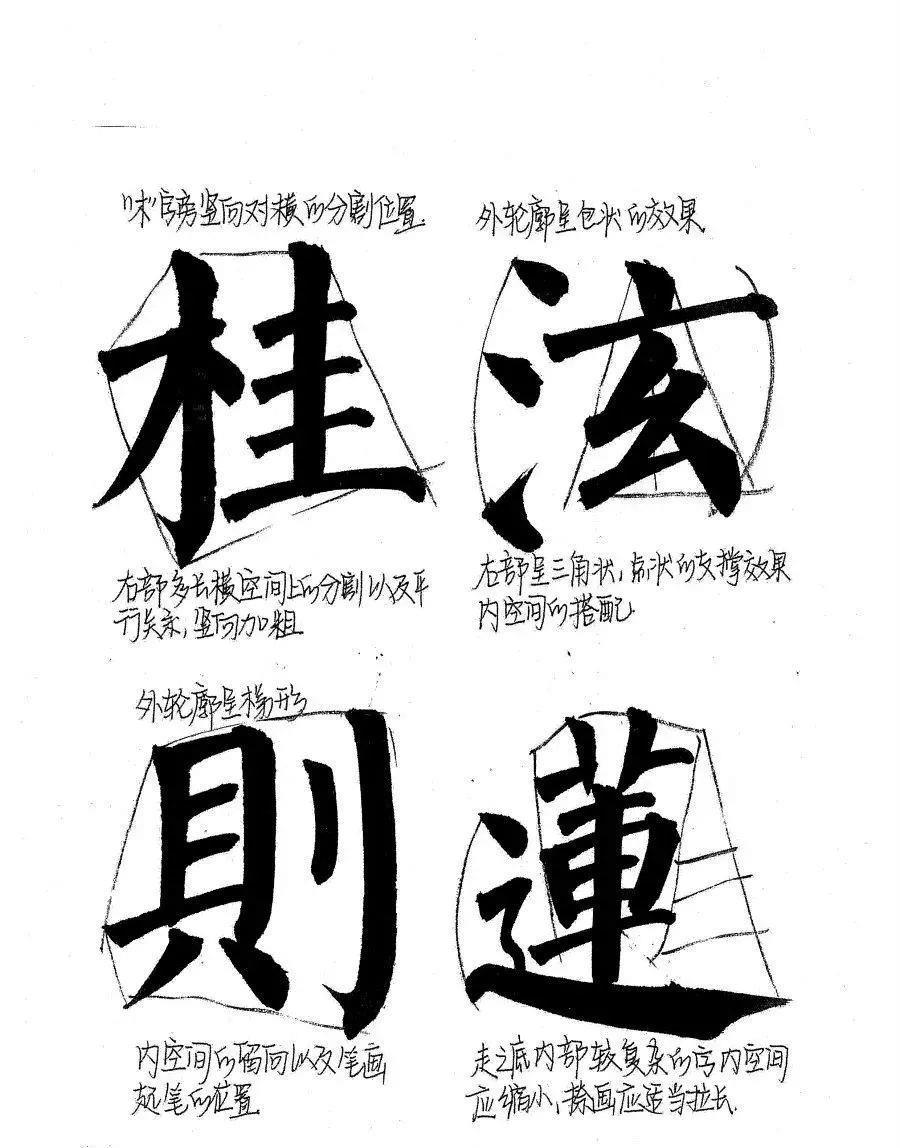 "木"字旁竖向对横的分割位置.
外轮廓呈包状的效果.
桂
泫
右部多长横空间上的分割以及平
行关系,竖向加粗
右部呈三角状,点状的支撑效果
内空间的搭配
外轮廓呈梯形
則
蓮
内空间的留向以及笔画
起笔的位置
走之底内部较复杂的字内空间
应缩小,捺画应适当拉长.